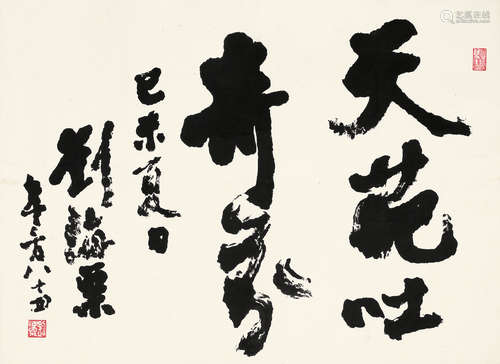 天葩吐
奇芬
己未夏日
劉海粟
年方八十四